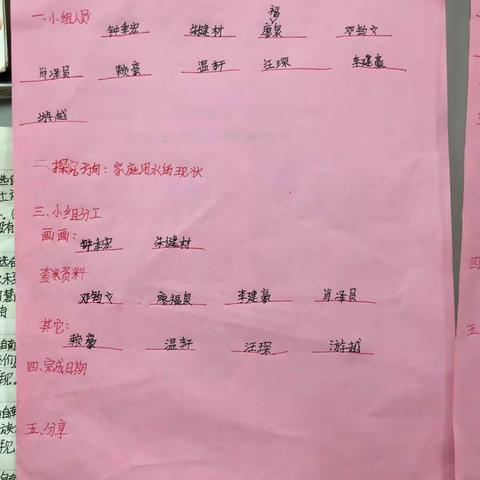 一.小组人员
钟季宏 朱健材 廖福泉 邓钧文
肖泽员 赖豪 温轩 汪琛 李建豪
游越
二.探究方向:家庭用水的现状
三.小组分工
画画: 钟季宏 朱健材
查询资料:
邓钧文 廖福泉 李建豪 肖泽员
其它:
赖豪 温轩 汪琛 游越
四.完成日期
五.分享